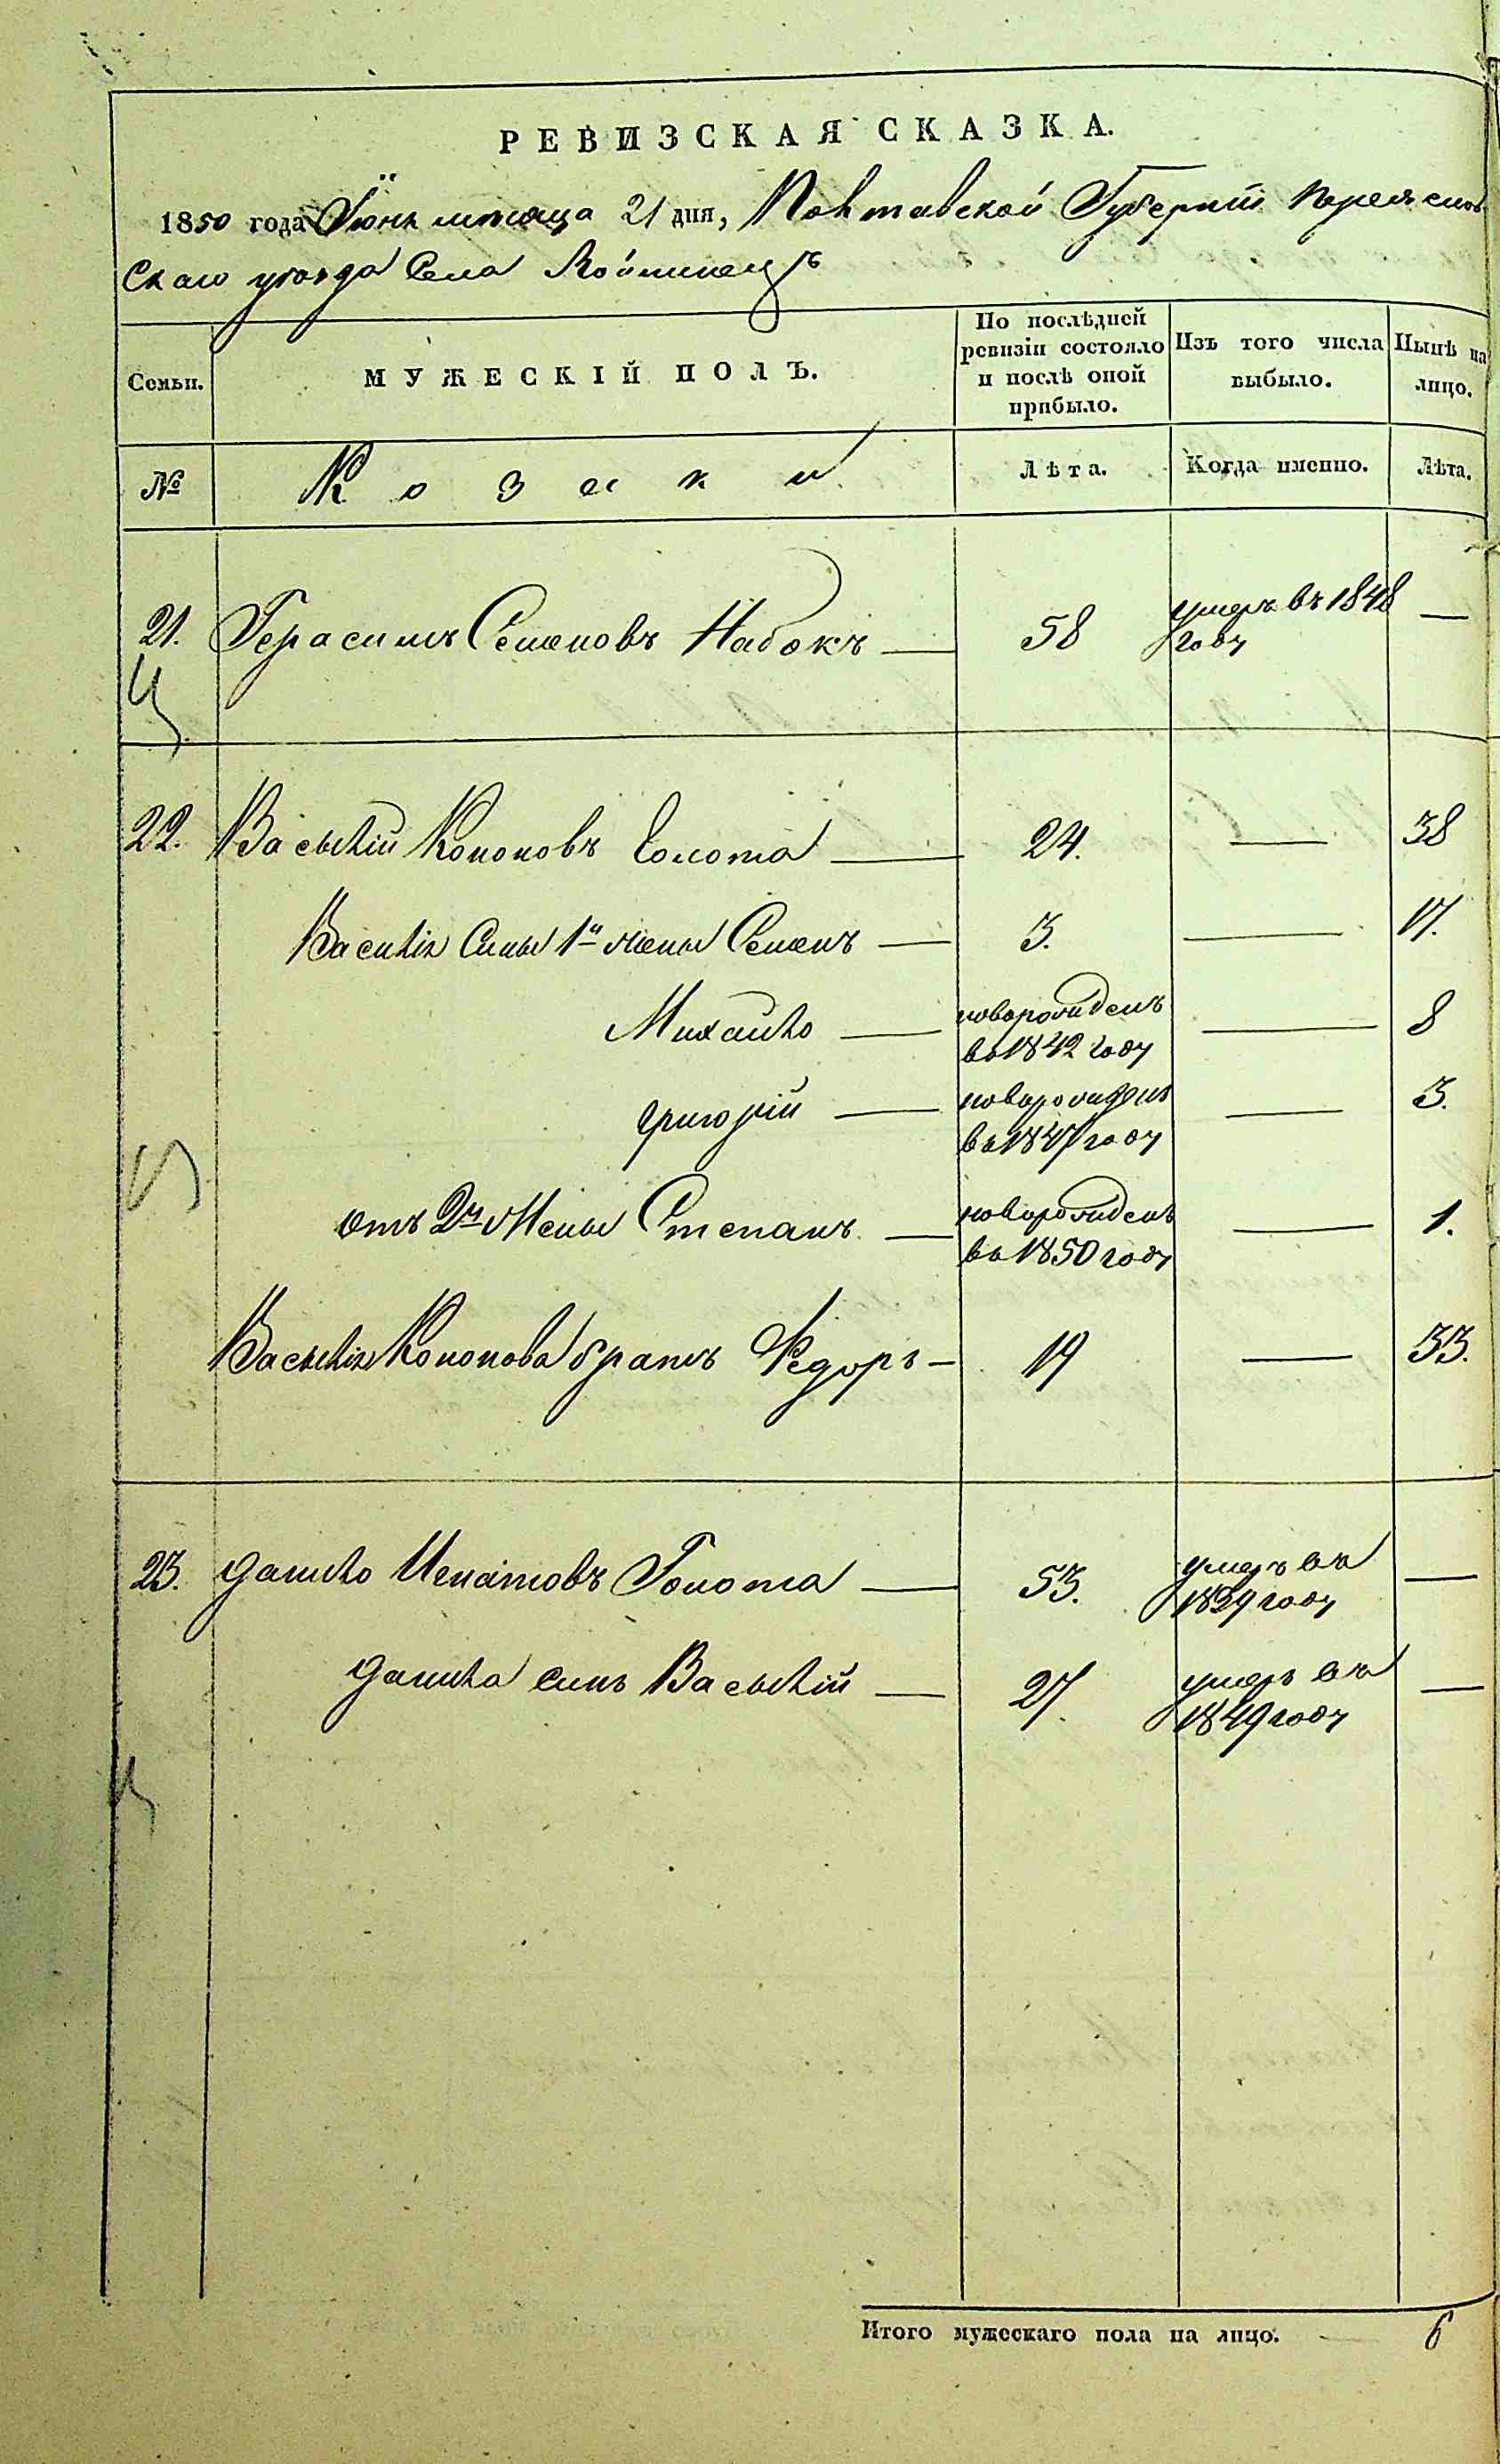 РЕВИЗСКАЯ СКАЗКА.
1850 года Іюнь мѣсяца 21 дня, Полтавской Губерніи Переяслов
скаго уѣзда Села Войтовецъ
Семьи.
МУЖЕСКІЙ ПОЛЪ.
По послѣдней ревизіи состояло и послѣ оной прибыло.
Изъ того числа выбыло.
Нынѣ на лицо.
№
Козаки
Лѣта.
Когда именно.
Лѣта.
21. Герасимъ Семеновъ Набокъ — 58 умеръ въ 1848 —
году
22. Василій Кононовъ Голота — 24. — 38
Василія Сыны 1й жены Семенъ — 3. — 17.
Михайло — новорожденъ — 8
въ 1842 году
Григорій — новорожденъ — 3.
въ 1847 году
отъ 2й Жены Степанъ — новорожденъ — 1.
въ 1850 году
Василія Кононова братъ Федоръ — 19 — 33.
23. Данило Игнатовъ Голота — 53. умеръ въ —
1839 году
Данила сынъ Василій — 27. умеръ въ —
1849 году
Итого мужескаго пола на лицо. — 6